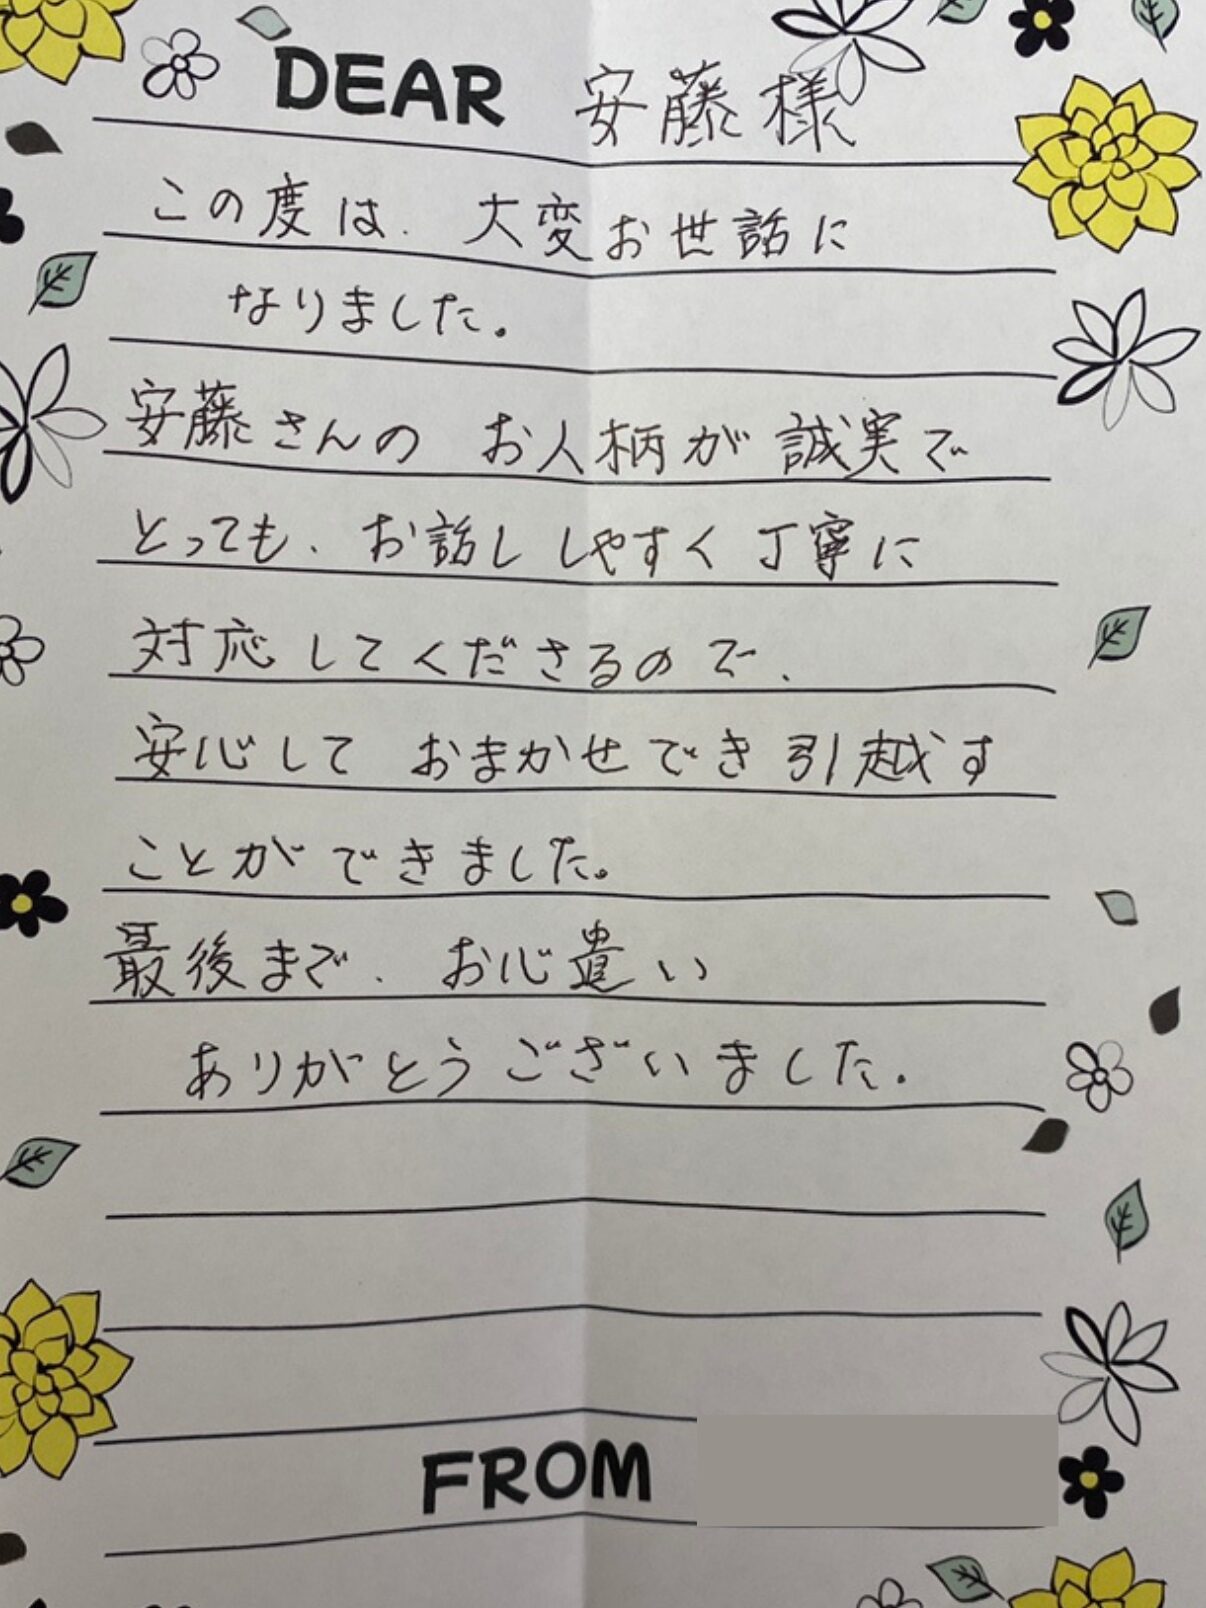 DEAR 安藤様
この度は、大変お世話に
なりました。
安藤さんの お人柄が誠実で
とっても、お話し しやすく丁寧に
対応してくださるので、
安心して おまかせでき引越す
ことができました。
最後まで、お心遣い
ありがとうございました。
FROM